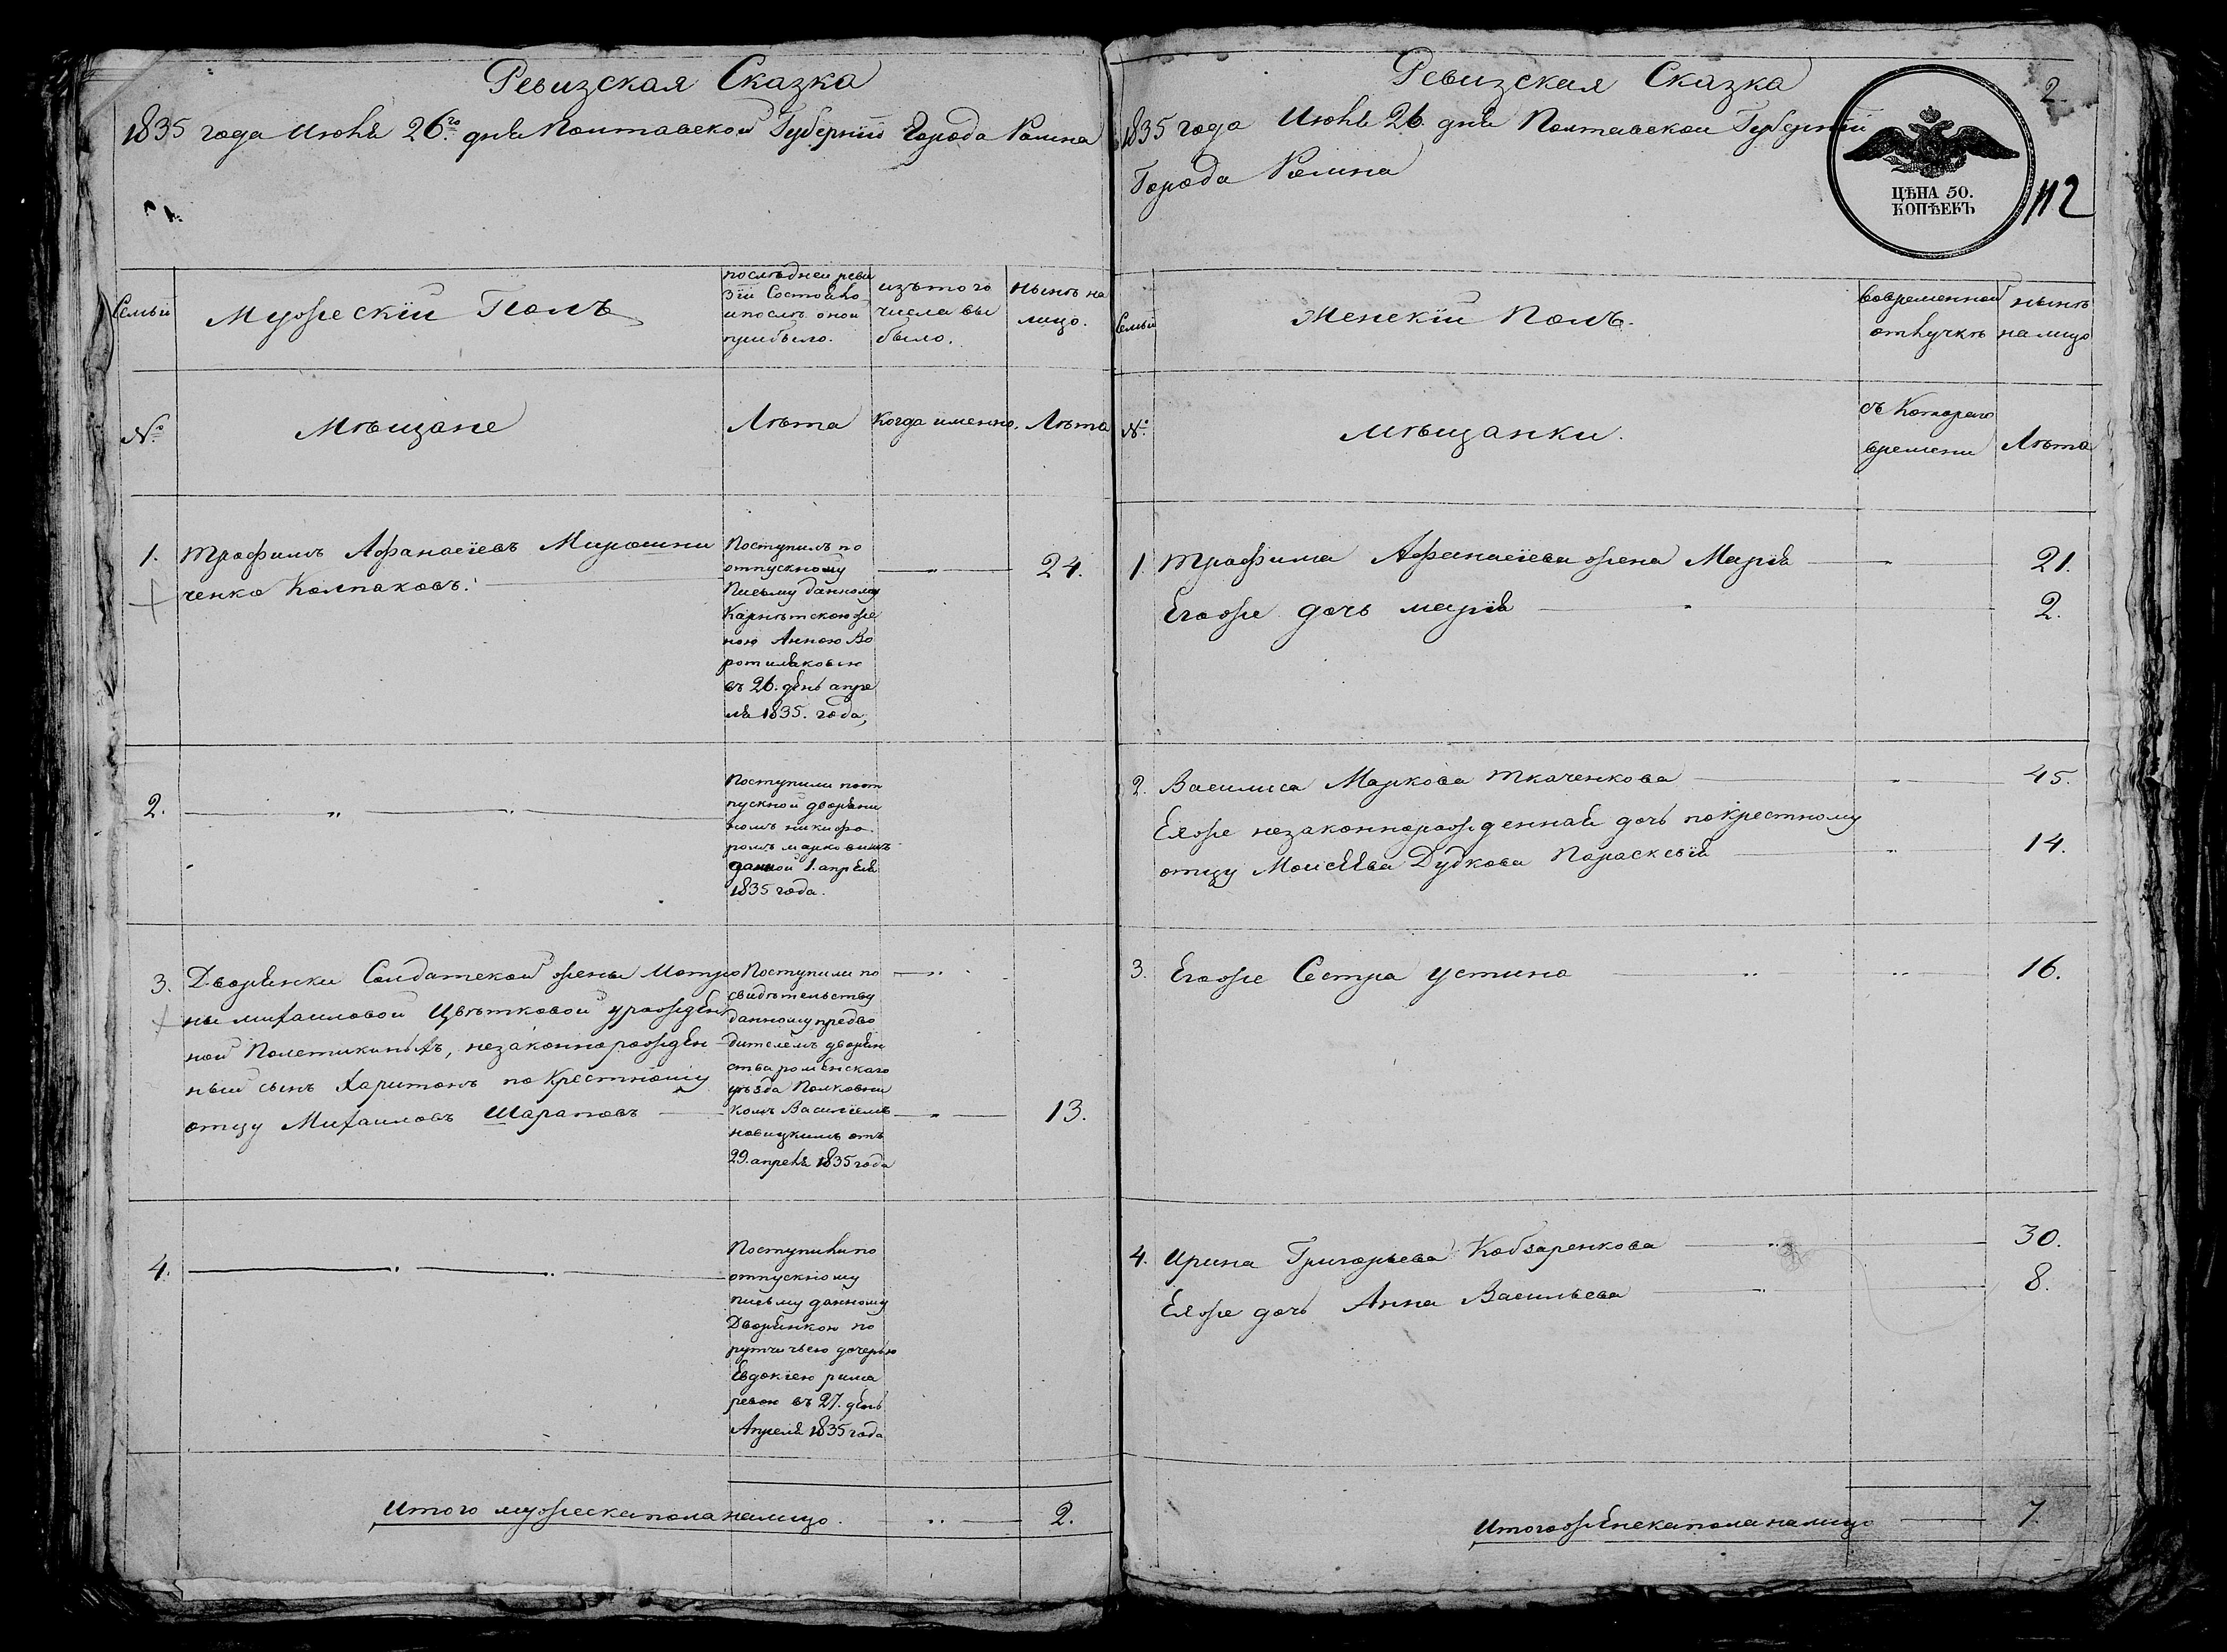 Ревизская Сказка
1835 года Июня 26.го дня Полтавской Губерніи Города Ромна
Семьи
Мужескій Полъ
последней реви
зіи Состояло
и посль оной
прибыло.
изъ того
числа вы
было.
Нынѣ на
лицо.
№
Мѣщане
Лѣта
Когда именно.
Лѣта
1.
Трофимъ Афанасіевъ Мирошни
ченко Колпаковъ.
Поступилъ по
отпускному
Письму данному
женою Анною Во
ротиляковою
въ 26. день апре
ля 1835. года,
24.
2.
Поступили по от
пускной дворяни
номъ никифо
ромъ марковичъ
данной 1. апреля
1835 года.
3.
Дворянки Солдатской жены Мотро
ны михаиловой Цвѣтковой урожден
ной Полетикиныхъ, незаконнорожден
ный сынъ Харитонъ по Крестному
отцу Михаиловъ Шараповъ
Поступили по
свидѣтельству
данному предво
дителемъ дворян
ства роменскаго
уѣзда Полковни
комъ Василіемъ
новицкимъ отъ
29. апреля 1835 года
13.
4.
Поступили по
отпускному
письму данному
Дворянкою по
ручичьею дочерью
Евдокіею рима
ревою въ 27. день
Апреля 1835 года
Итого мужеска пола налицо.
2.
Ревизская Сказка
2
1835 года Июня 26. дня Полтавской Губерніи
Города Ромна
ЦѢНА 50.
КОПѢЕКЪ
112
Семьи
Женскій Полъ.
во временной
отлучкѣ
нынѣ
налицо
№
мѣщанки.
съ Котораго
времени
Лѣта
1. Трофима Афанасіева жена Марія
21.
Его же дочь марія
2.
2. Василиса Маркова Ткаченкова
45.
Ея же незаконнорожденная дочь по крестному
отцу Моисеева Дудкова Параскевія
14.
3. Его же Сестра Устина
16.
4. Ирина Григорьева Кобзаренкова
30.
Ея же дочь Анна Васильева
8.
Итого женска пола налицо
7.